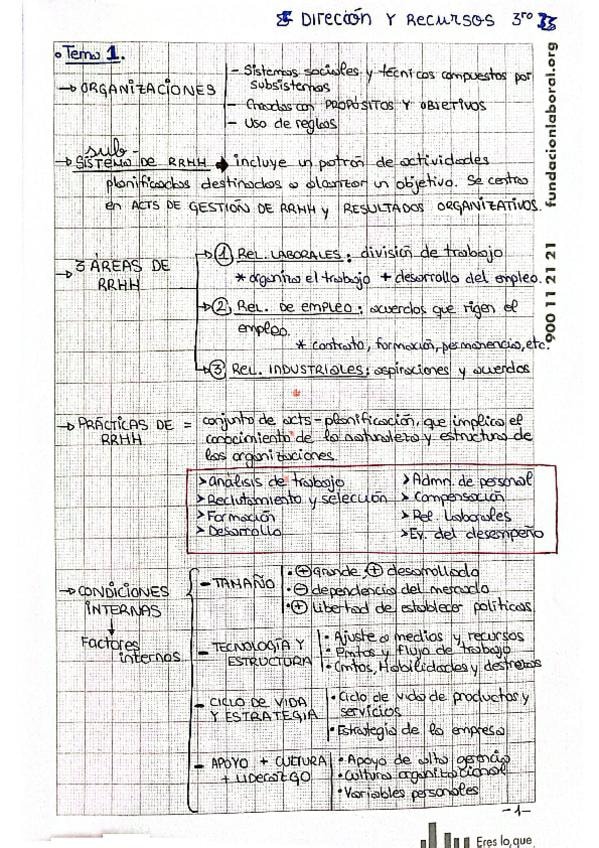 Dirección Y Recursos 3ro
• Tema 1.
→ ORGANIZACIONES
- Sistemas sociales y técnicos compuestos por
subsistemas
- Creados con PROPÓSITOS Y OBJETIVOS
- Uso de reglas
sub-
→ SISTEMA DE RRHH → incluye un patrón de actividades
planificados destinados a alcanzar un objetivo. Se centra
en ACTS DE GESTIÓN DE RRHH y RESULTADOS ORGANIZATIVOS.
→ 3 ÁREAS DE
RRHH
→ 1 REL. LABORALES: división de trabajo
* organiza el trabajo + desarrollo del empleo.
→ 2 REL. DE EMPLEO: acuerdos que rigen el
empleo.
* contrato, formación, permanencia, etc.
→ 3 REL. INDUSTRIALES: aspiraciones y acuerdos
→ PRÁCTICAS DE
RRHH
= conjunto de acts-planificación, que implica el
conocimiento de la naturaleza y estructura de
las organizaciones.
> análisis de trabajo
> Reclutamiento y selección
> Formación
> Desarrollo
> Admn. de personal
> Compensación
> Rel. Laborales
> Ev. del desempeño
→ CONDICIONES
INTERNAS
↓
Factores
internos
- TAMAÑO
• + grande, + desarrollado
• - dependencia del mercado
• + Libertad de establecer políticas
- TECNOLOGÍA Y
ESTRUCTURA
• Ajuste a medios y recursos
• Pmtos y flujo de trabajo
• Cmtos, Habilidades y destrezas
- CICLO DE VIDA
Y ESTRATEGIA
• Ciclo de vida de productos y
servicios
• Estrategia de la empresa
- APOYO + CULTURA
+ LIDERAZGO
• Apoyo de alta gerencia
• Cultura organizacional
• Variables personales
-1-
900 11 21 21 fundacionlaboral.org
Eres lo que